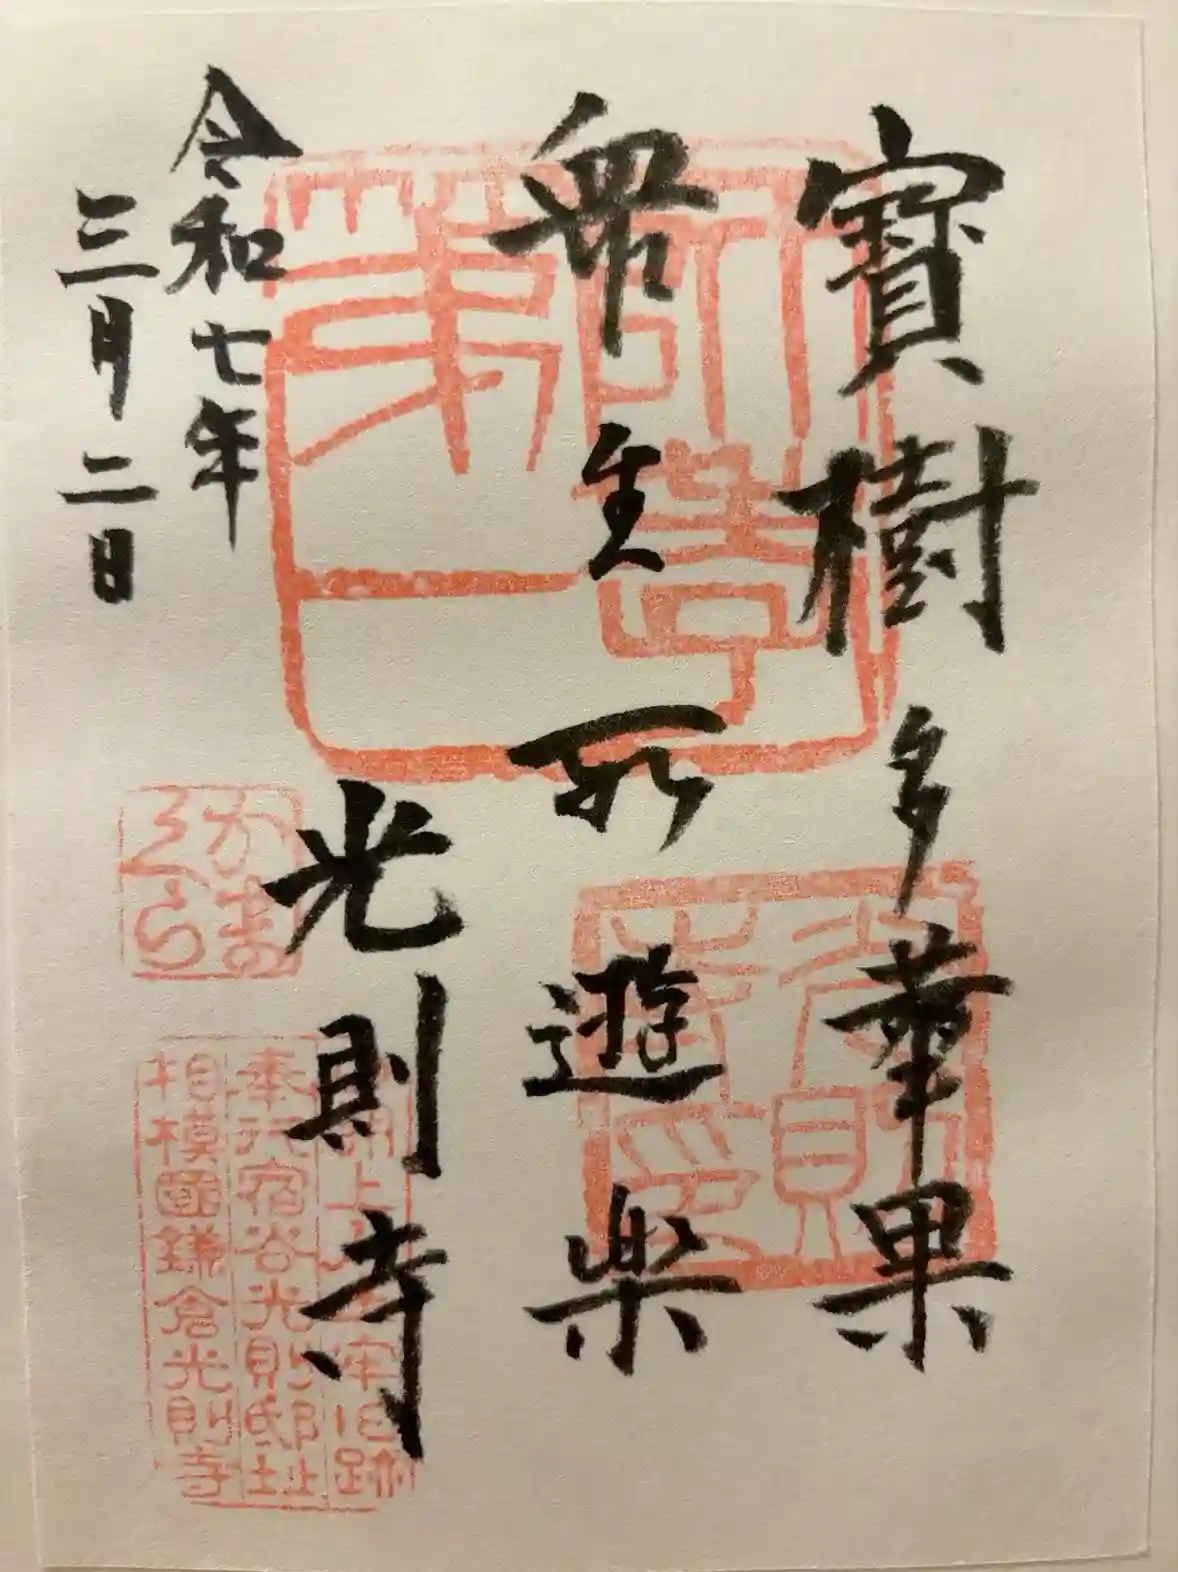 寶樹多華果
衆生所遊楽
光則寺
令和七年
三月二日
第一
光則寺印
かまくら
朗上人土牢旧跡
奉行宿谷光則邸址
相模國鎌倉光則寺